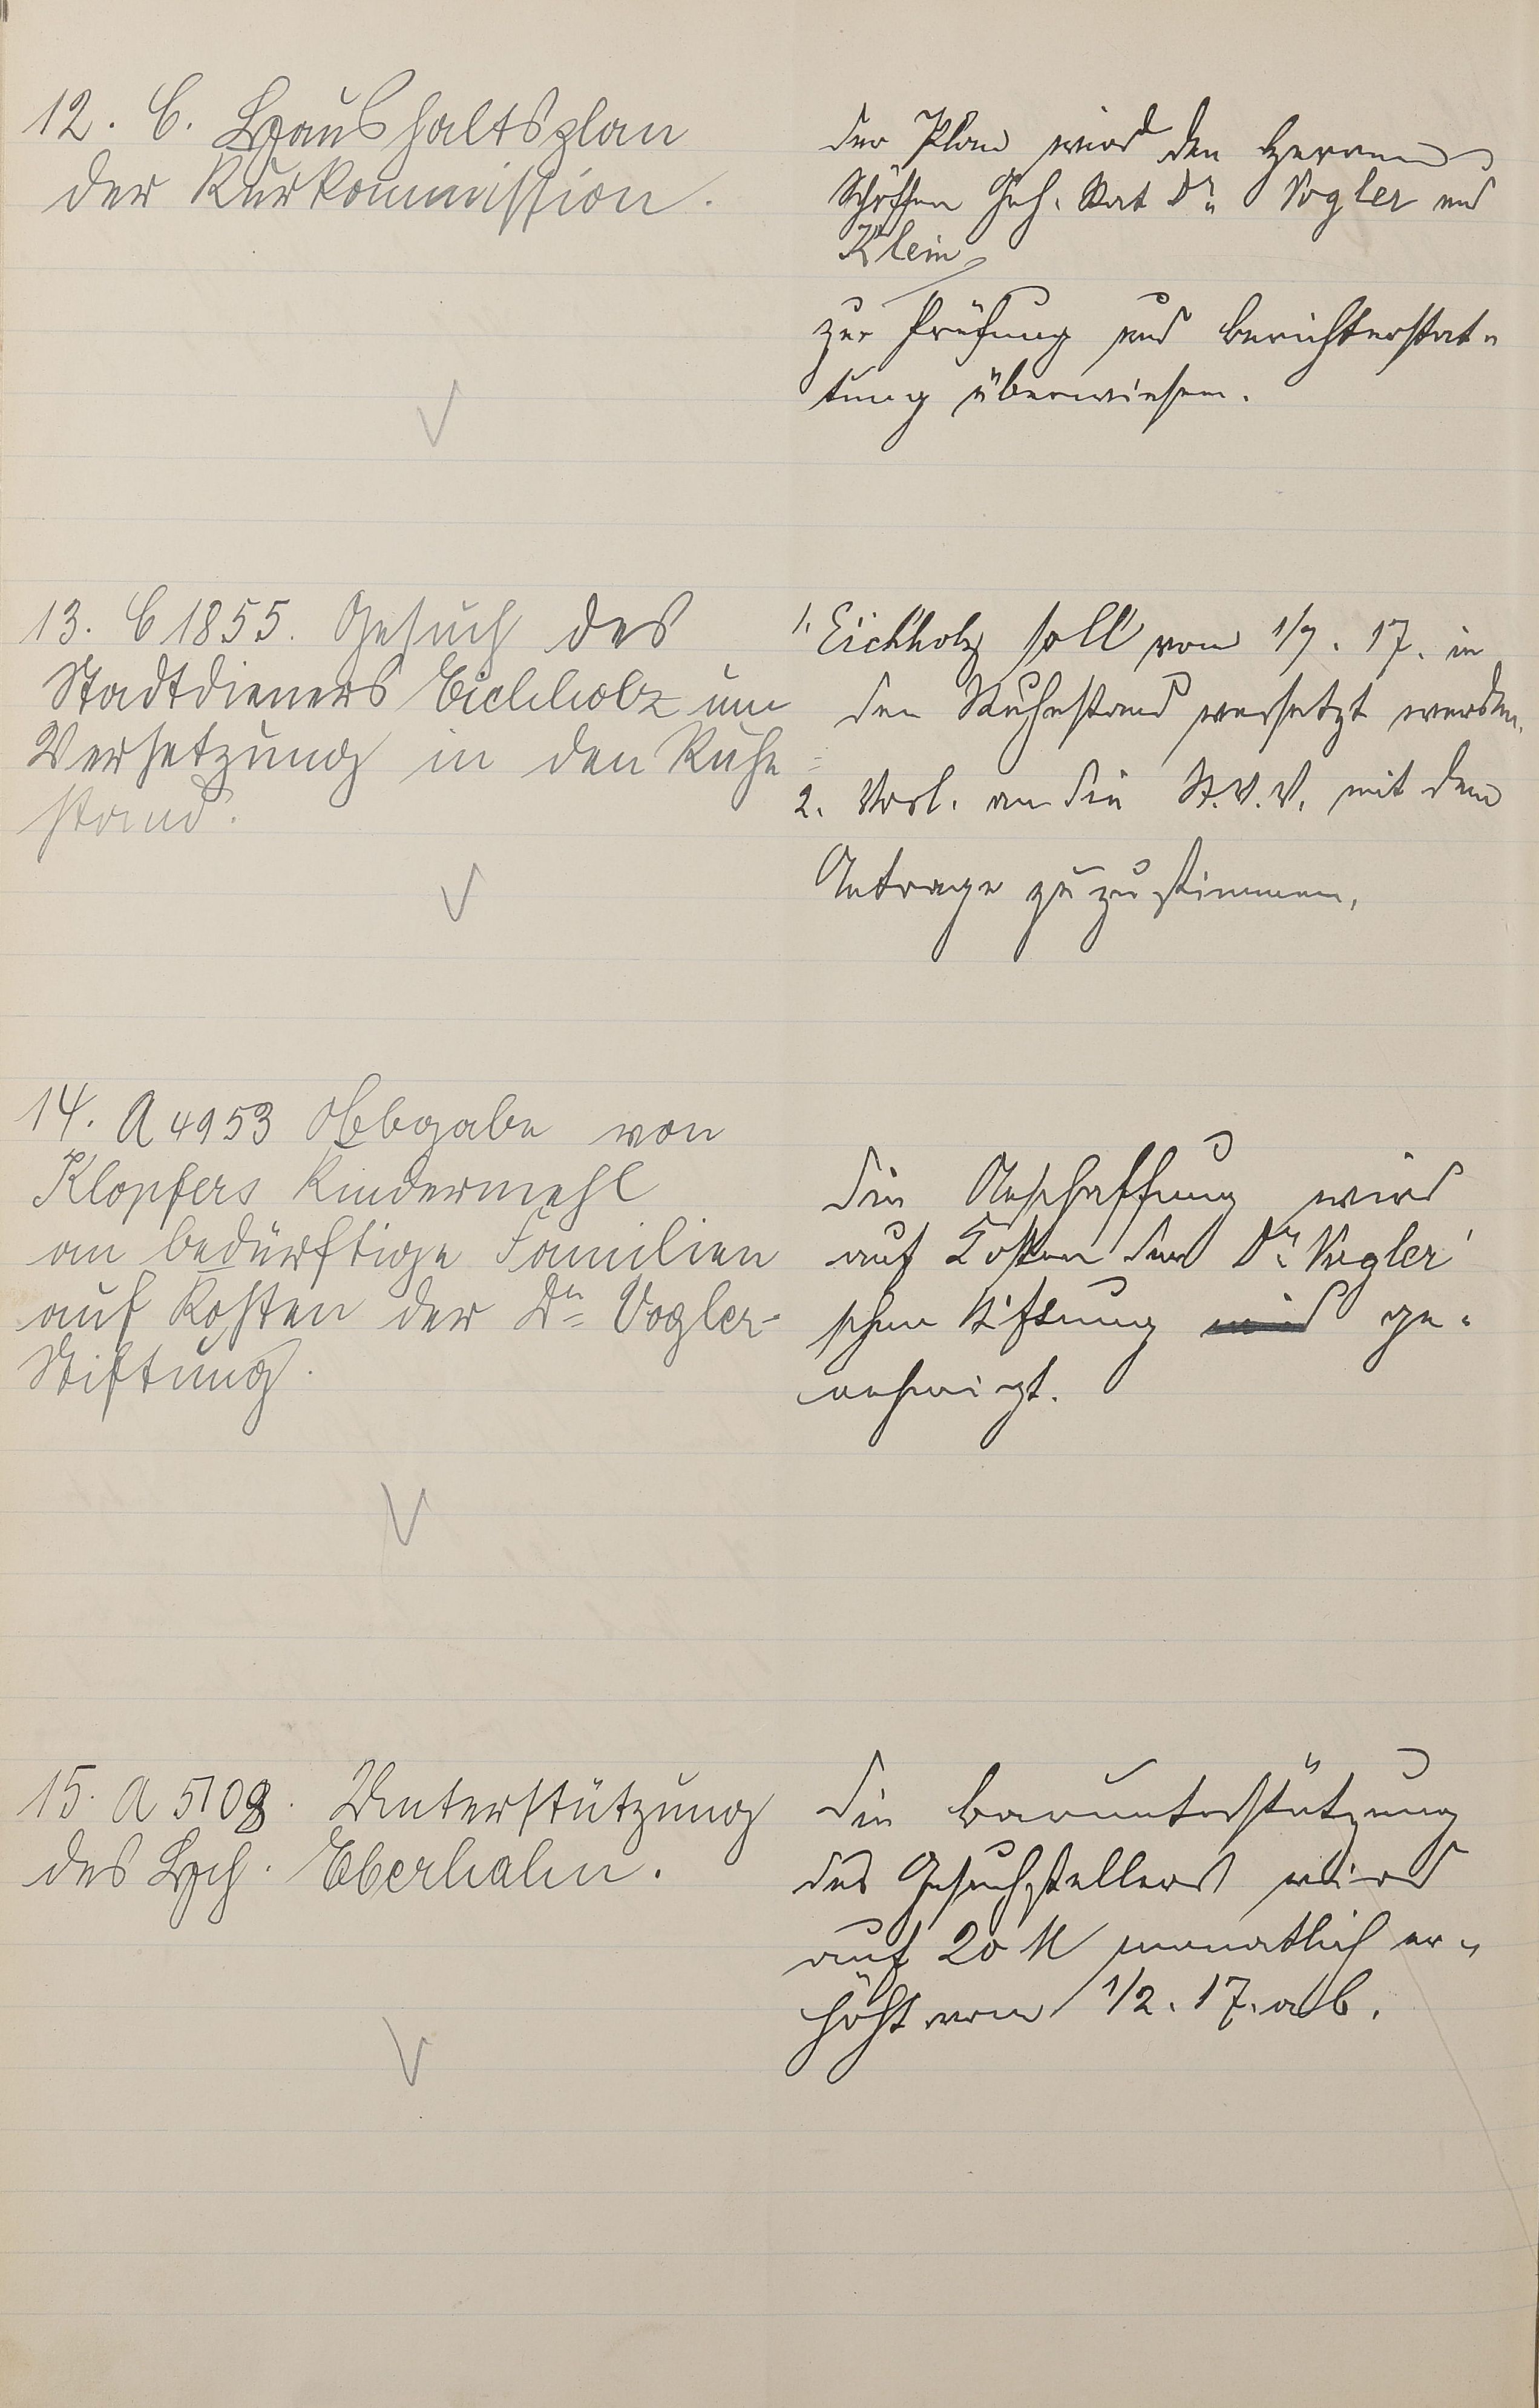 12. C. Haushaltsplan
der Kurkommission.
Der Plan wird den Herren
Schöffen Geh. Rat Dr. Vogler und
Klein
zur Prüfung und Berichterstat-
tung überwiesen.
13. C 1855. Gesuch des
Stadtdieners Eichholz um
Versetzung in den Ruhe-
stand.
1. Eichholz soll vom 1/7. 17. in
den Ruhestand versetzt werden.
2. Vorl. an die St.V.V. mit dem
Antrage zuzustimmen.
14. A 4953 Abgabe von
Klopfers Kindermehl
an bedürftige Familien
auf Kosten der Dr. Vogler-
Stiftung.
Die Anschaffung wird
auf Kosten der Dr. Vogler'
schen Stiftung wird ge-
nehmigt.
15. A 5108. Unterstützung
des Hch. Eberhahn.
Die Barunterstützung
des Gesuchstellers wird
auf 20 M monatlich er-
höht vom 1/2. 17. ab.